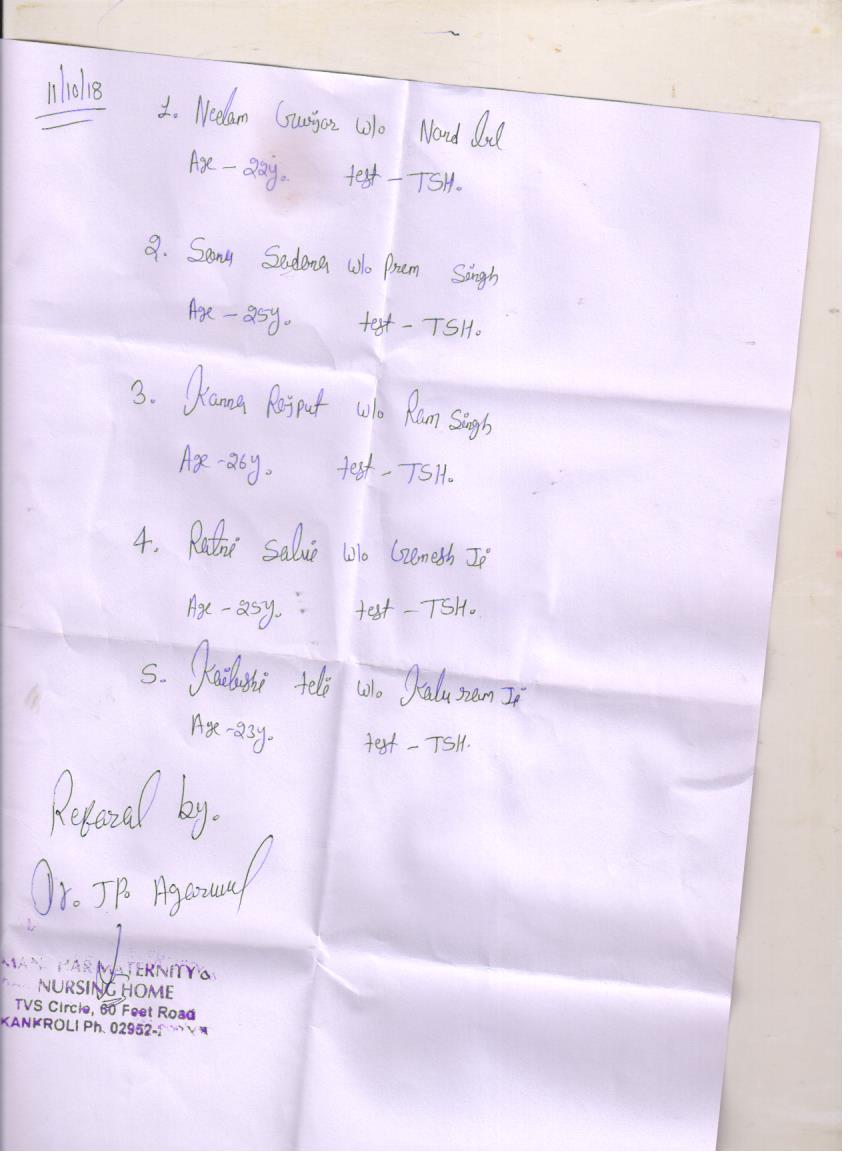 11/10/18
1. Neelam Gurjar w/o Nand lal
Age - 22y. test - TSH.
2. Sonu Sadana w/o Prem Singh
Age - 25y. test - TSH.
3. Kanna Rajput w/o Ram Singh
Age - 26y. test - TSH.
4. Ratni Salvi w/o Gemesh Ji
Age - 25y. test - TSH.
5. Kailashi teli w/o Kalu ram Ji
Age - 23y. test - TSH.
Refaral by.
Dr. JP. Agarwal
MATERNITY &
NURSING HOME
TVS Circle, 60 Feet Road
KANKROLI Ph. 02952-